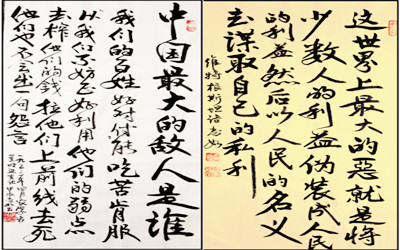 这世界上最大的惡就是将
少数人的利益伪装成人民
的利益然后以人民的名义
去谋取自己的私利
维特根斯坦语
中国最大的敌人是谁
我们的百姓好对付能吃苦肯服
从我们不妨正好利用他们的弱点
去榨他们的钱拉他们上前线去死
他们也不会生一句怨言